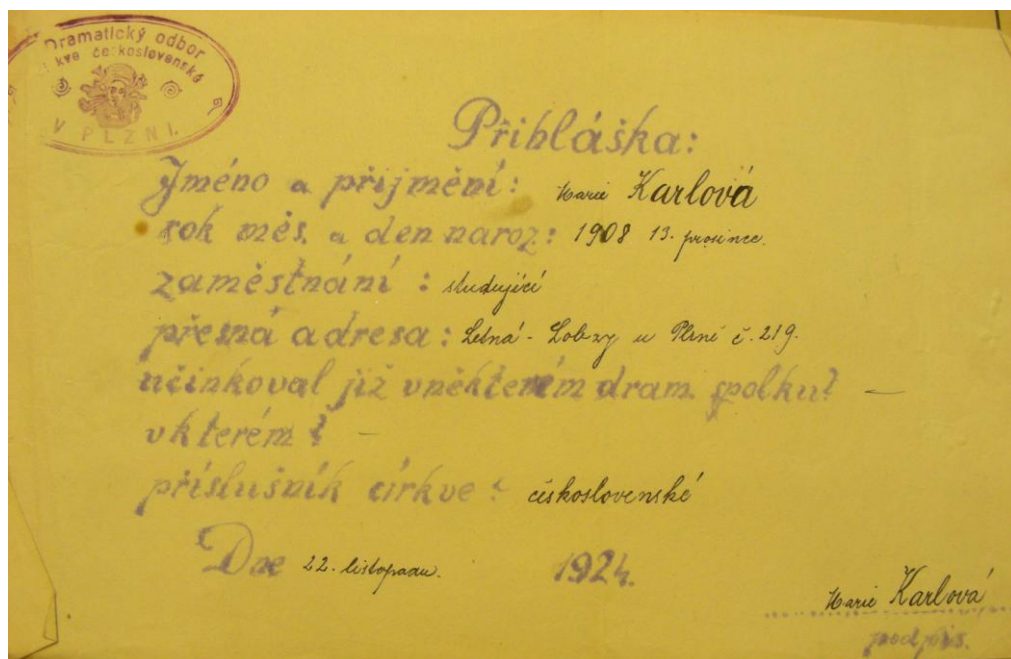 Dramatický odbor
kve československé
V PLZNI.
Přihláška:
Jméno a přijmění: Marie Karlová
rok měs. a den naroz: 1908 13. prosince.
zaměstnání : studující
přesná adresa: Letná - Lobzy u Plzně č. 219.
účinkoval již vněkterém dram. spolku? —
vkterém? —
příslušník církve : československé
Dne 22. listopadu. 1924.
Marie Karlová
podpis.